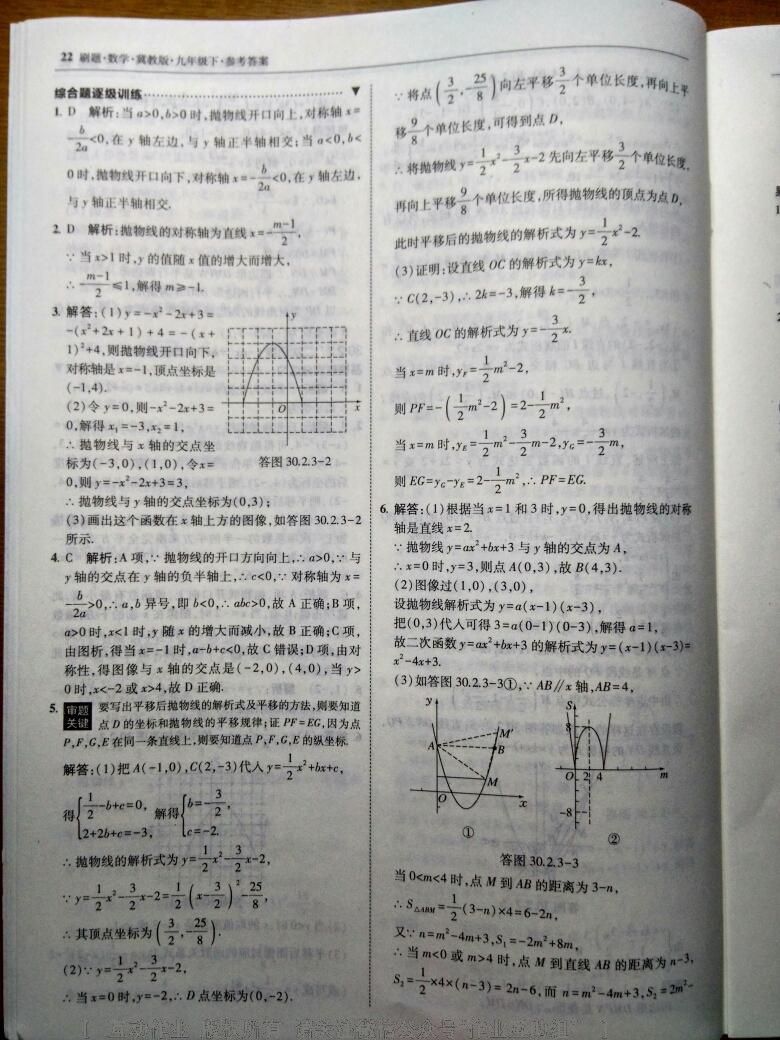 22 刷题·数学·冀教版·九年级下·参考答案
综合题逐级训练
1. D 解析:当 a>0,b>0 时,抛物线开口向上,对称轴 x=
-b/2a<0,在 y 轴左边,与 y 轴正半轴相交;当 a<0,b<
0时,抛物线开口向下,对称轴 x=-b/2a<0,在 y 轴左边,
与 y 轴正半轴相交.
2. D 解析:抛物线的对称轴为直线 x=-(m-1)/2,
∵ 当 x>1 时,y 的值随 x 值的增大而增大,
∴ -(m-1)/2≤1,解得 m≥-1.
3. 解答:(1) y=-x²-2x+3=
-(x²+2x+1)+4=-(x+
1)²+4,则抛物线开口向下,
对称轴是 x=-1,顶点坐标是
(-1,4).
(2)令 y=0,则-x²-2x+3=
0,解得 x₁=-3,x₂=1,
∴ 抛物线与 x 轴的交点坐
标为(-3,0),(1,0),令x=
0,则 y=-x²-2x+3=3,
y
O
x
答图 30.2.3-2
∴ 抛物线与 y 轴的交点坐标为(0,3);
(3)画出这个函数在 x 轴上方的图像,如答图 30.2.3-2
所示.
4. C 解析:A 项,∵ 抛物线的开口方向向上,∴ a>0,∵ 与
y 轴的交点在 y 轴的负半轴上,∴ c<0,∵ 对称轴为 x=
-b/2a>0,∴ a,b 异号,即 b<0,∴ abc>0,故 A 正确;B 项,
a>0 时,x<1 时,y 随 x 的增大而减小,故 B 正确;C 项,
由图析,得当 x=-1 时,a-b+c<0,故 C 错误;D 项,由对
称性,得图像与 x 轴的交点是(-2,0),(4,0),当 y>
0 时,x<-2 或 x>4,故 D 正确.
5. 审题关键 要写出平移后抛物线的解析式及平移的方法,则要知道
点 D 的坐标和抛物线的平移规律;证 PF=EG,因为点
P,F,G,E 在同一条直线上,则要知道点 P,F,G,E 的纵坐标.
解答:(1)把 A(-1,0),C(2,-3)代入 y=1/2x²+bx+c,
得{1/2-b+c=0, 2+2b+c=-3, 解得{b=-3/2, c=-2.
∴ 抛物线的解析式为 y=1/2x²-3/2x-2,
∵ y=1/2x²-3/2x-2=1/2(x-3/2)²-25/8,
∴ 其顶点坐标为(3/2,-25/8).
(2)∵ y=1/2x²-3/2x-2,
∴ 当 x=0 时,y=-2,∴ D 点坐标为(0,-2).
∵ 将点(3/2,-25/8)向左平移3/2个单位长度,再向上平
移9/8个单位长度,可得到点 D,
∴ 将抛物线 y=1/2x²-3/2x-2 先向左平移3/2个单位长度,
再向上平移9/8个单位长度,所得抛物线的顶点为点 D,
此时平移后的抛物线的解析式为 y=1/2x²-2.
(3)证明:设直线 OC 的解析式为 y=kx,
∵ C(2,-3),∴ 2k=-3,解得 k=-3/2,
∴ 直线 OC 的解析式为 y=-3/2x.
当 x=m 时,y_F=1/2m²-2,
则 PF=-(1/2m²-2)=2-1/2m²,
当 x=m 时,y_E=1/2m²-3/2m-2,y_G=-3/2m,
则 EG=y_G-y_E=2-1/2m²,∴ PF=EG.
6. 解答:(1)根据当 x=1 和 3 时,y=0,得出抛物线的对称
轴是直线 x=2.
∵ 抛物线 y=ax²+bx+3 与 y 轴的交点为 A,
∴ x=0 时,y=3,则点 A(0,3),故 B(4,3).
(2)图像过(1,0),(3,0),
设抛物线解析式为 y=a(x-1)(x-3),
把(0,3)代入可得 3=a(0-1)(0-3),解得 a=1,
故二次函数 y=ax²+bx+3 的解析式为 y=(x-1)(x-3)=
x²-4x+3.
(3)如答图 30.2.3-3①,∵ AB∥x 轴,AB=4,
y
M′
A
B
M
O
x
①
S
8
O 2 4 m
-8
②
答图 30.2.3-3
当 0<m<4 时,点 M 到 AB 的距离为 3-n,
∴ S△ABM=1/2(3-n)×4=6-2n,
又∵ n=m²-4m+3,S₁=-2m²+8m,
∴ 当 m<0 或 m>4 时,点 M 到直线 AB 的距离为 n-3,
S₂=1/2×4×(n-3)=2n-6,而 n=m²-4m+3,S₂=2m²-